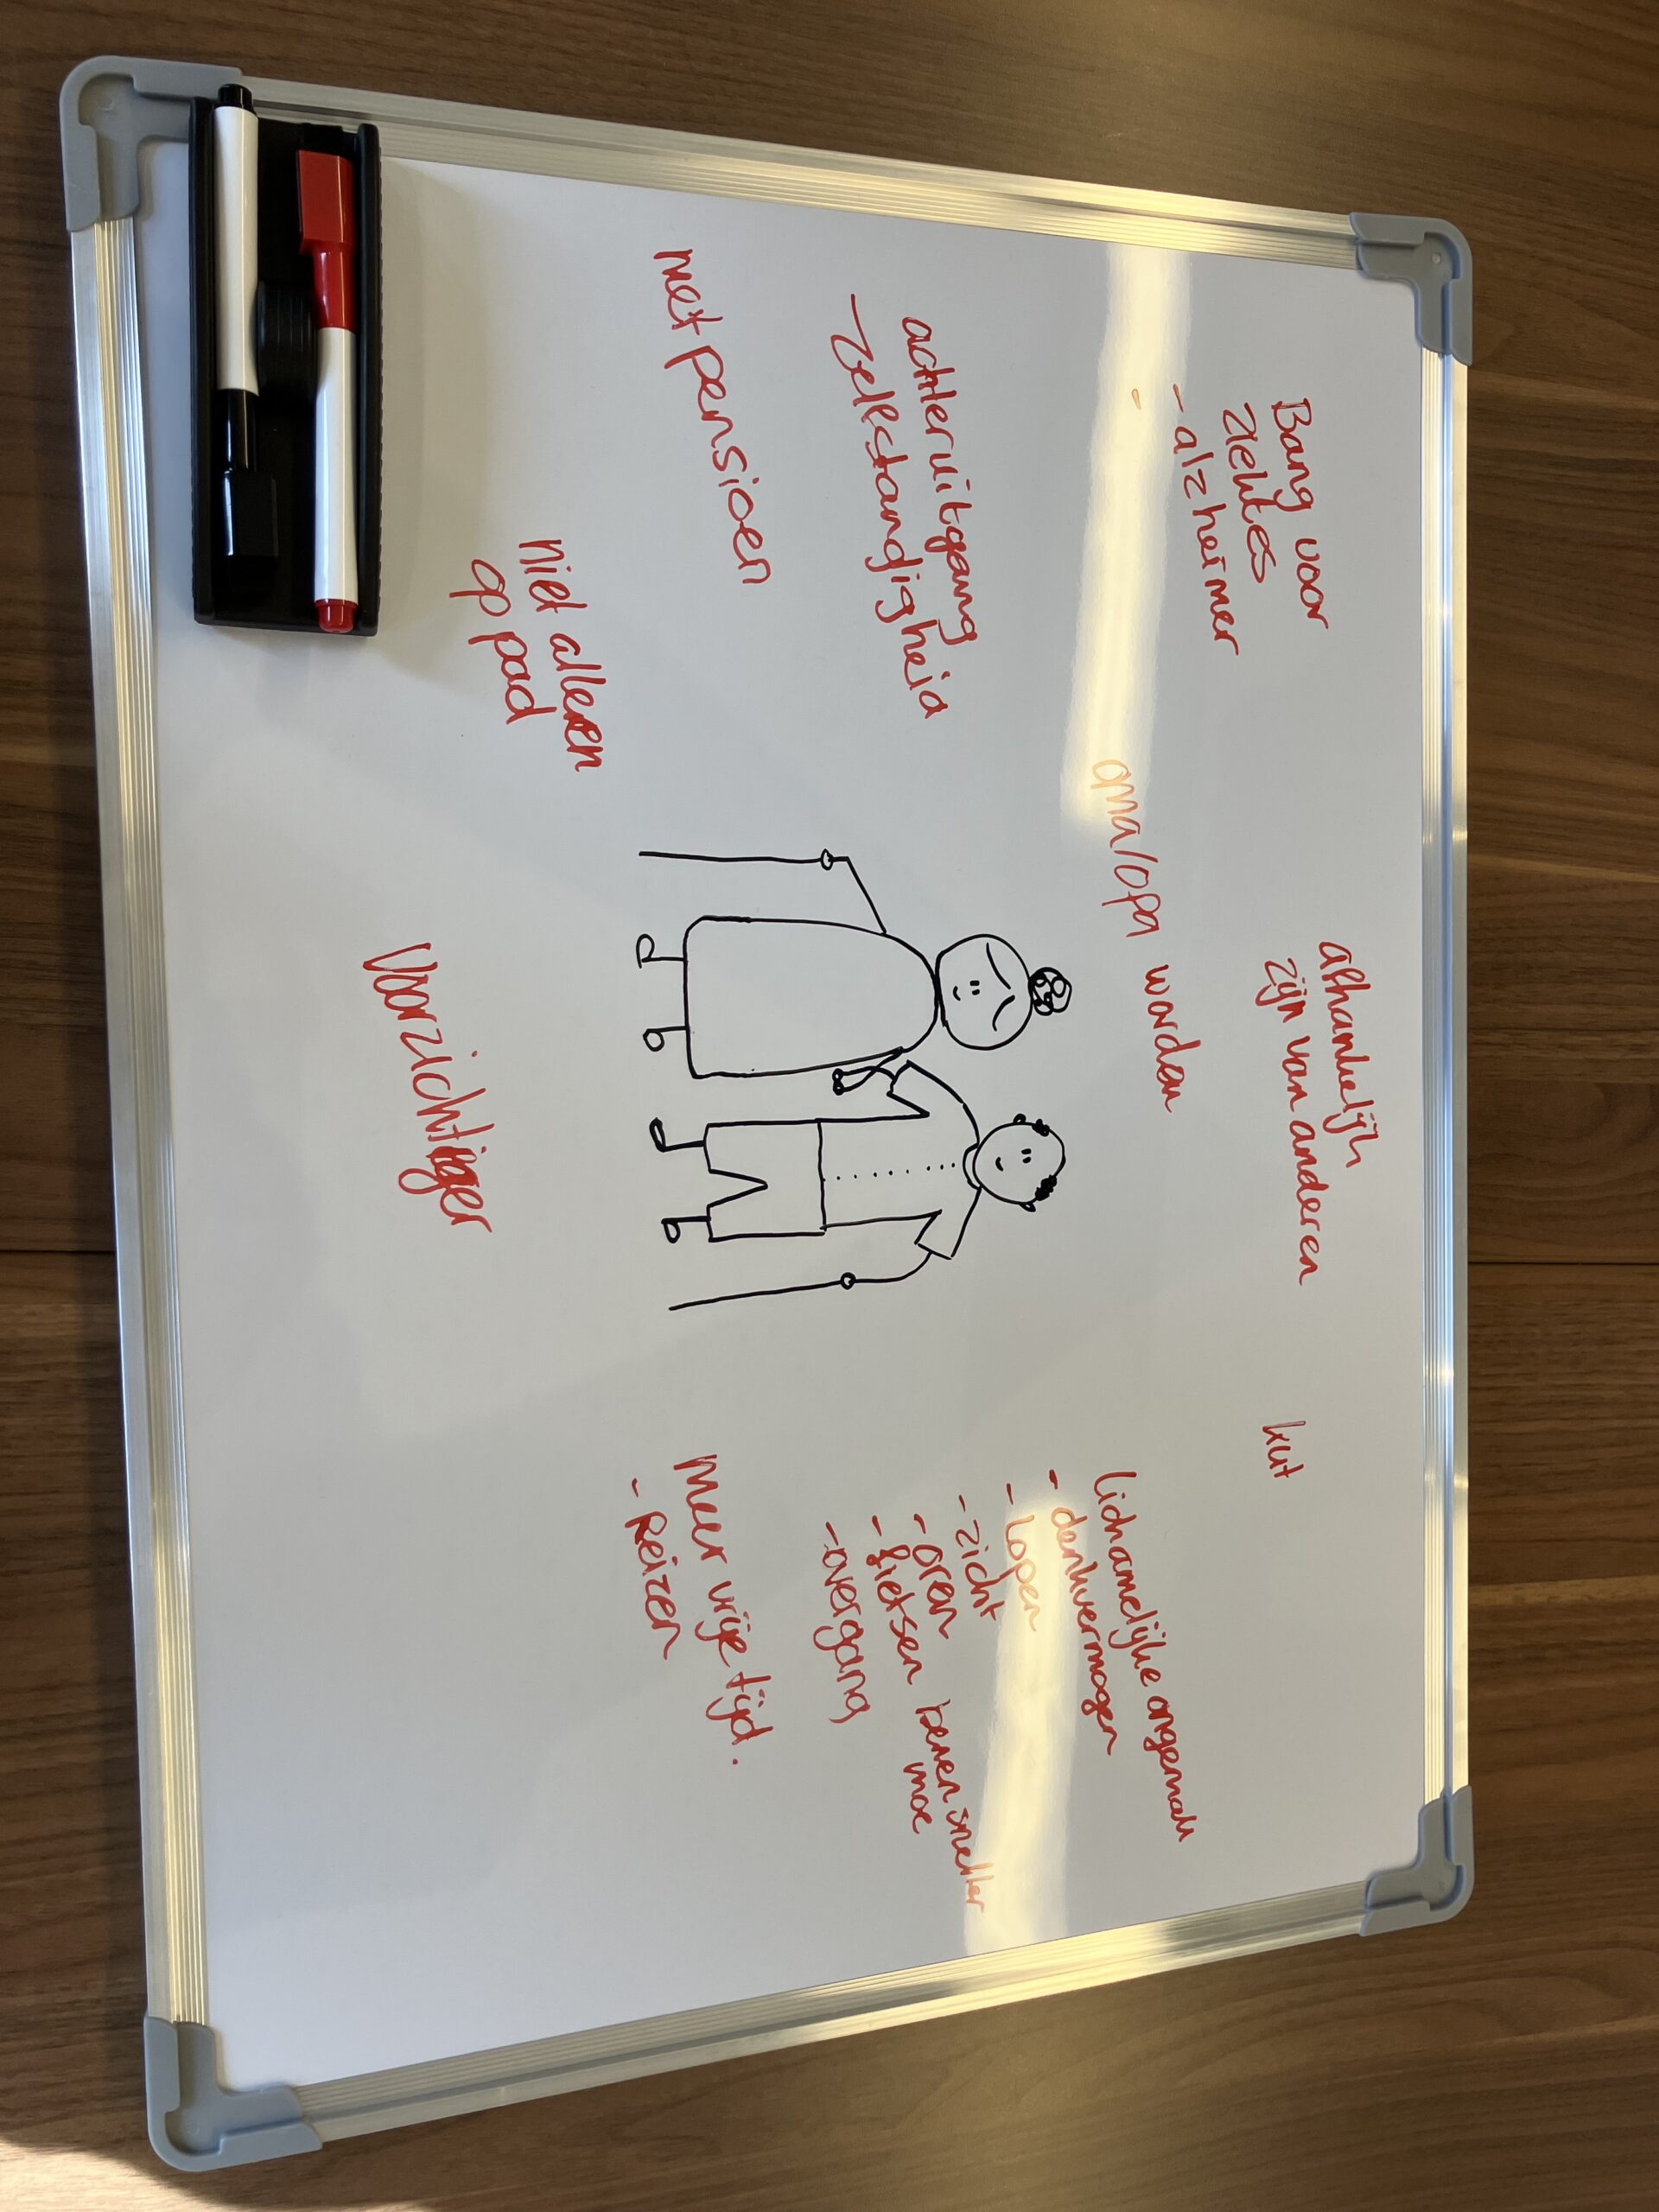 Bang voor
ziektes
- alzheimer
-
afhankelijk
zijn van anderen
kut
oma/opa worden
achteruitgang
- zelfstandigheid
met pensioen
niet alleen
op pad
voorzichtiger
lichamelijke ongemak
- denkvermogen
- lopen
- zicht
- oren
- fietsen benen sneller
moe
- overgang
meer vrije tijd.
- Reizen